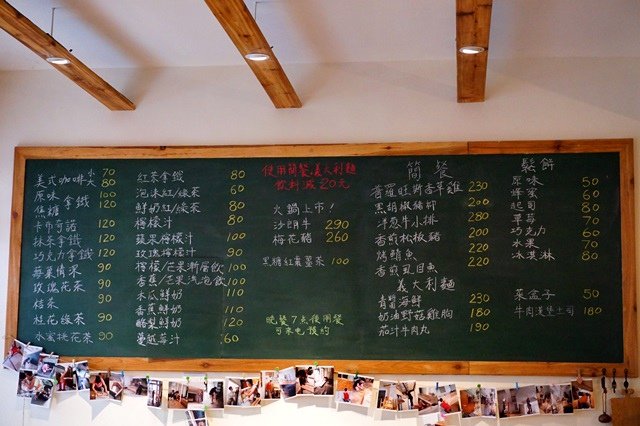 美式咖啡 小 70
大 80
原味拿鐵 100
焦糖拿鐵 120
卡布奇諾 120
抹茶拿鐵 120
巧克力拿鐵 120
莓果情果 90
玫瑰花茶 90
桔茶 90
桂花綠茶 90
水蜜桃花茶 90
紅茶拿鐵 80
泡沫紅/綠茶 60
鮮奶紅/綠茶 80
檸檬汁 80
蘋果檸檬汁 100
玫瑰檸檬汁 90
檸檬/芒果漸層飲 100
香蕉/芒果沈泡飲 100
木瓜鮮奶 110
香蕉鮮奶 110
酪梨鮮奶 120
蔓越莓汁 60
使用簡餐、義大利麵
飲料減20元
火鍋上市!
沙朗牛 290
梅花豬 260
黑糖紅棗薑茶 100
晚餐7点使用餐
可來电預約
簡餐
普羅旺斯香草雞 230
黑胡椒豬排 200
洋蔥牛小排 280
香煎松板豬 200
烤鯖魚 220
香煎虱目魚 220
義大利麵
青醬海鮮 230
奶油野菇雞胸 180
茄汁牛肉丸 190
鬆餅
原味 50
蜂蜜 60
起司 80
草莓 70
巧克力 60
水果 70
冰淇淋 80
菜盒子 50
牛肉漢堡土司 180